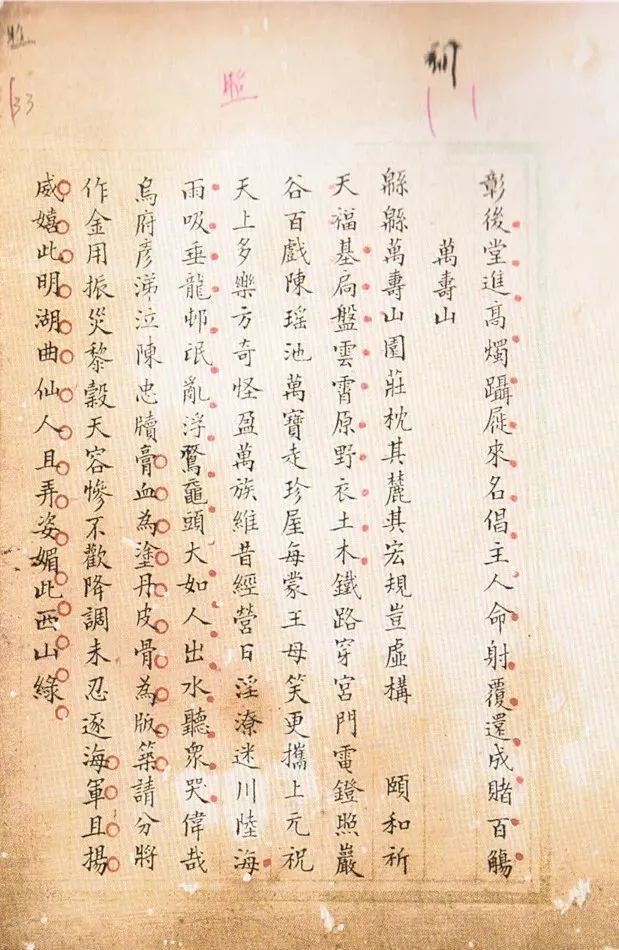 刊
照
照
133
彰後堂進高燭躡屣來名倡主人命射覆還成賭百觴
萬壽山
緜緜萬壽山園莊枕其麓其宏規豈虛構 頤和祈
天福基扃盤雲霄原野衣土木鐵路穿宮門電鐙照巖
谷百戲陳瑤池萬寶走珍屋每蒙王母笑更攜上元祝
天上多樂方奇怪盈萬族維昔經營日淫潦迷川陸海
雨吸垂龍邨氓亂浮鶩黿頭大如人出水聽衆哭偉哉
烏府彥涕泣陳忠牘膏血為塗丹皮骨為版築請分將
作金用振災黎穀天容慘不歡降調未忍逐海軍且揚
威嬉此明湖曲仙人且弄姿媚此西山綠